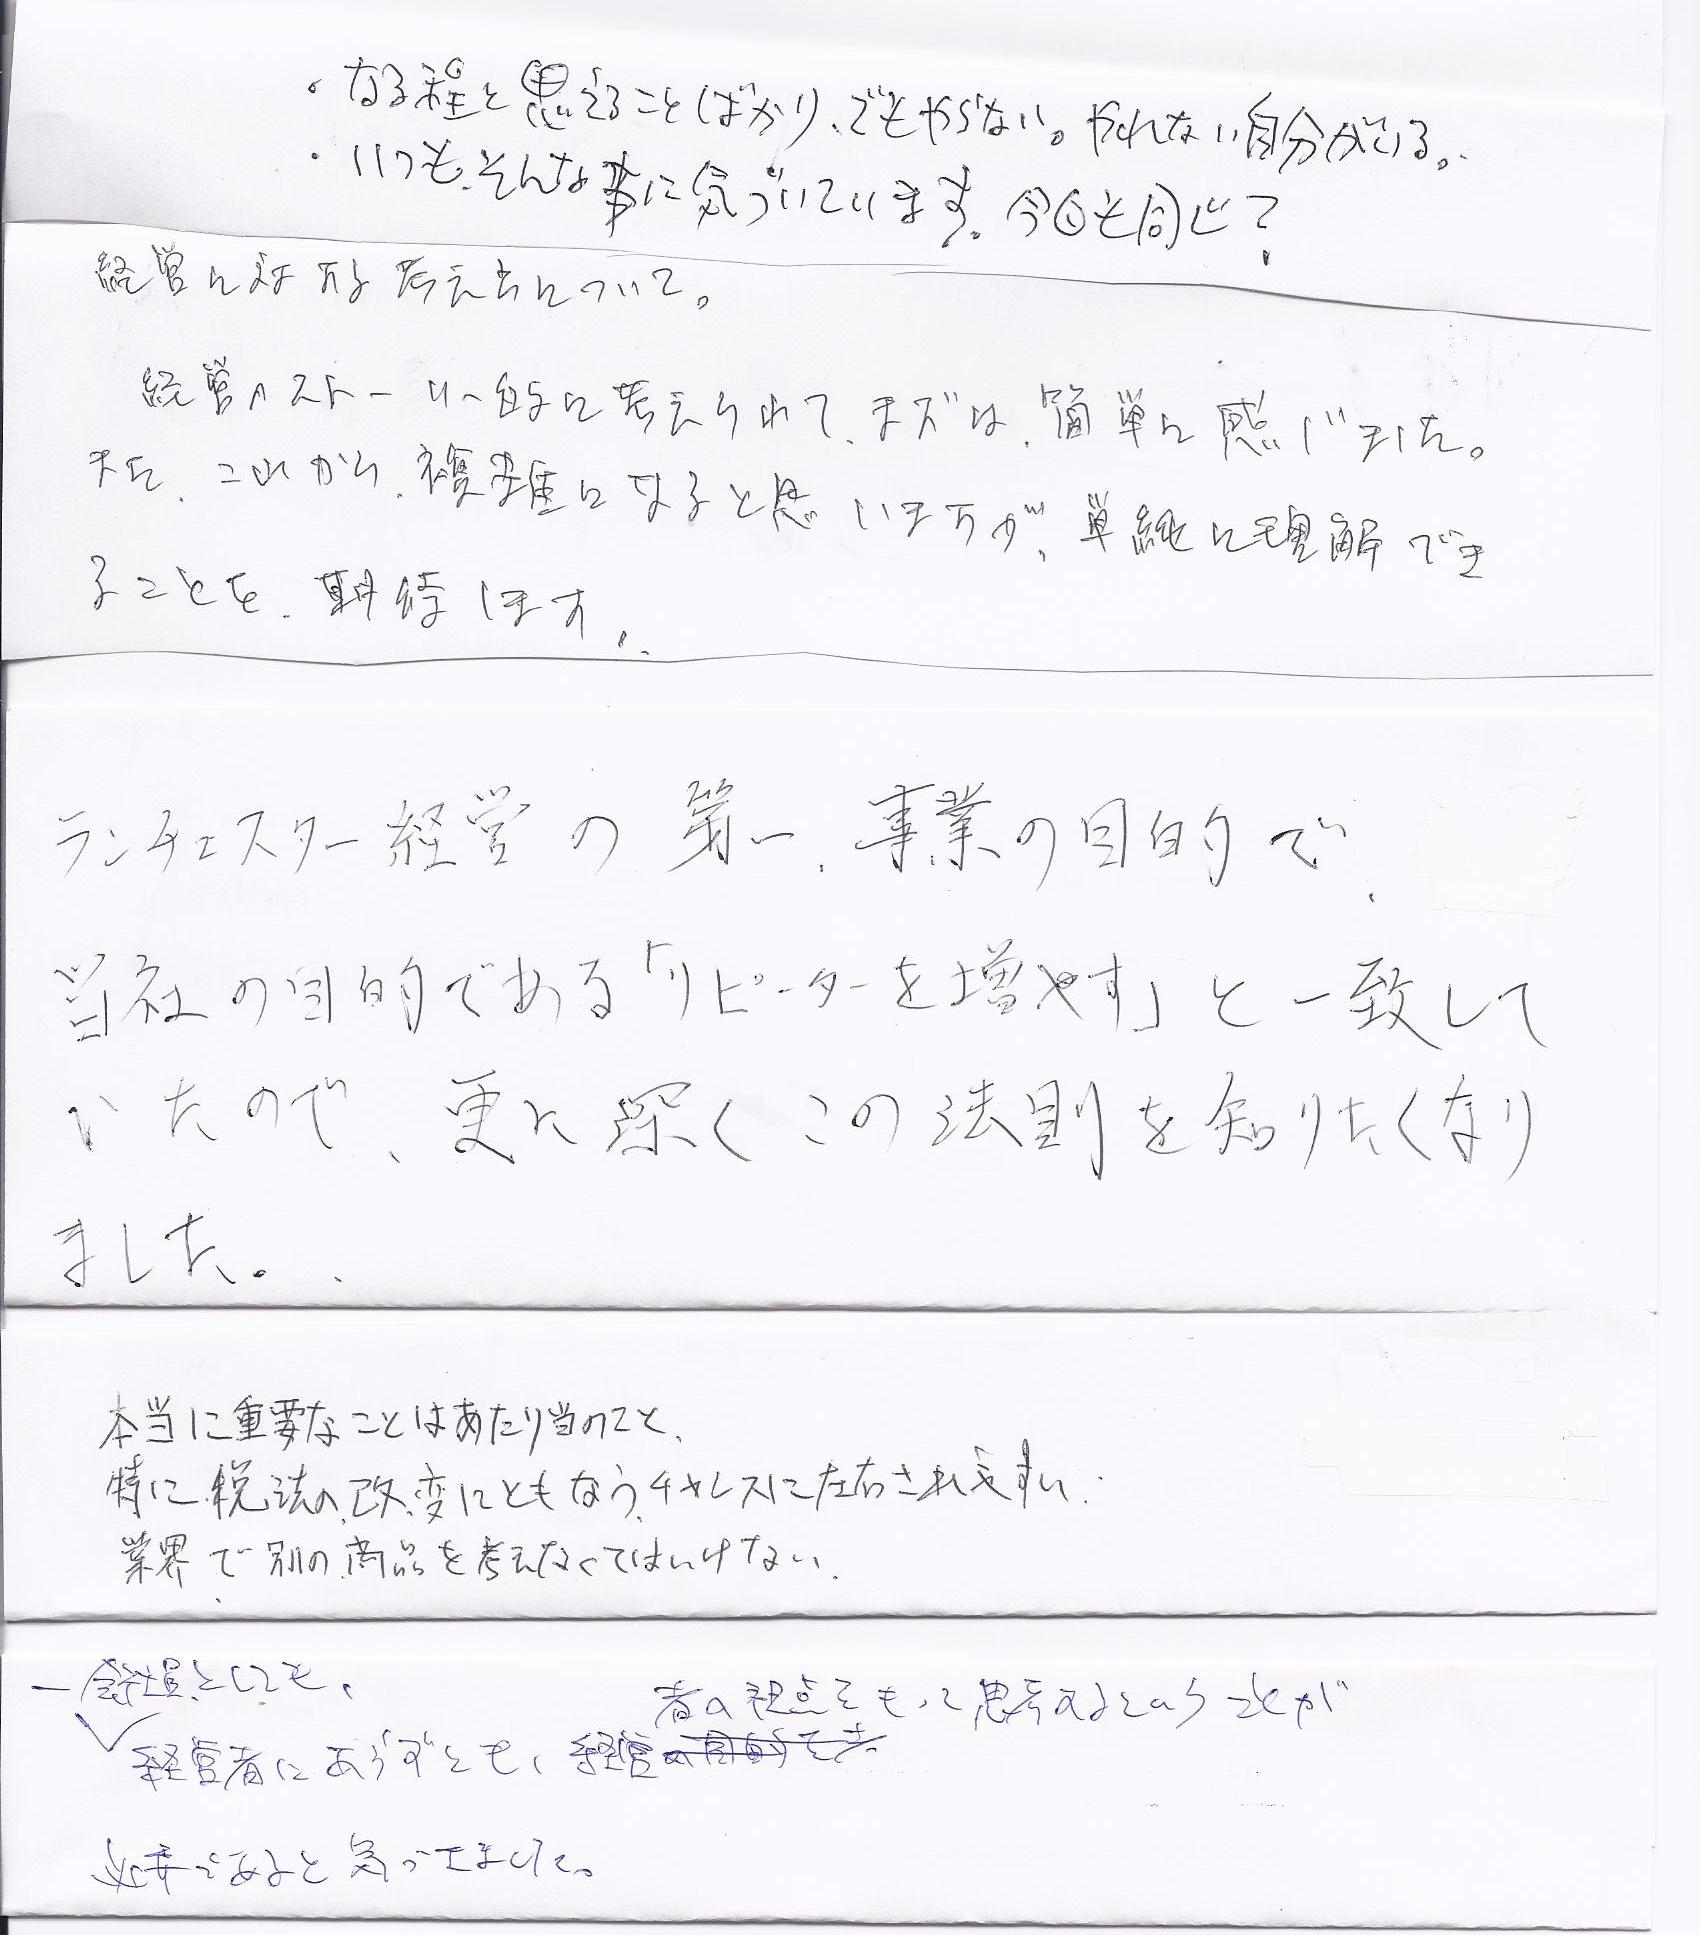 ・なる程と思えることばかり、でもやらない。やれない自分がいる。
・いつも、そんな事に気づいています。今日も同じ?
経営に対する考え方について。
経営へストーリー的に考えられて、まずは、簡単に感じました。
また、これから、複雑になると思いますが、単純に理解でき
ることを、期待します。
ランチェスター経営の第一、事業の目的で、
当社の目的である「リピーターを増やす」と一致して
いたので、更に深くこの法則を知りたくなり
ました。
本当に重要なことはあたり当のこと、
特に税法の改変にともなう、チャレスに左右されやすい
業界で別の商品を考えなくてはいけない、
一会社員としても、
経営者にあらずとも、経営者の視点をもって思考するということが
の目的を考
必要であると気づきました。